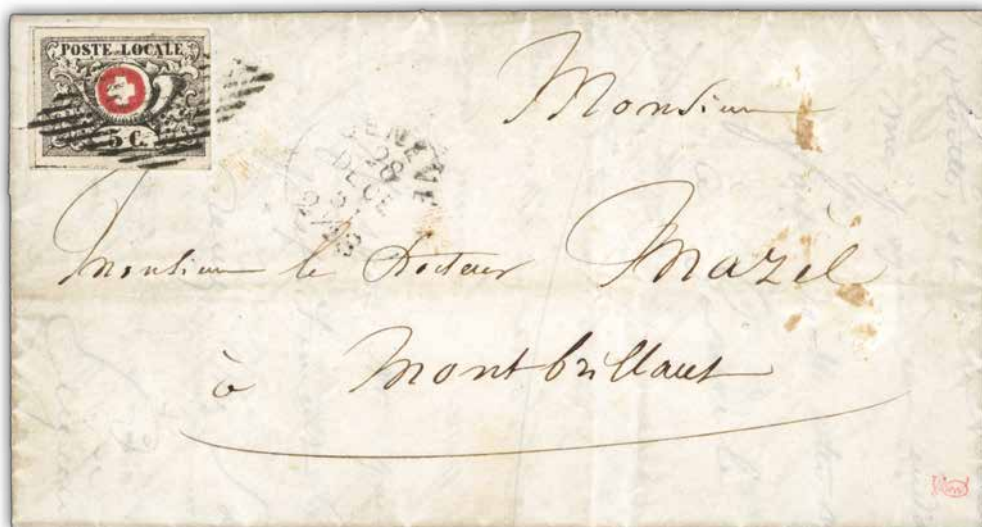 POSTE LOCALE
5 C.
GENÈVE
28
DEC
Monsieur
Monsieur le Docteur Mazel
à Montbrillant